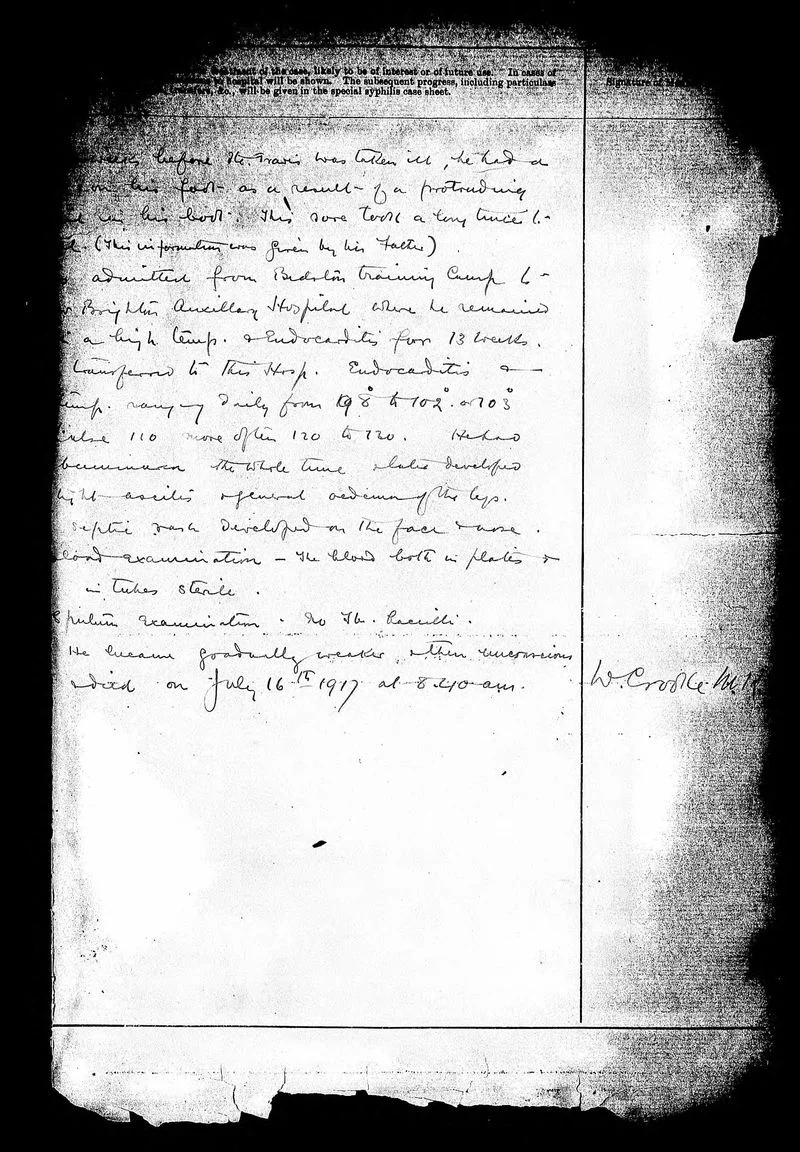 treatment of the case, likely to be of interest or of future use. In cases of
to hospital will be shown. The subsequent progress, including particulars
transfers, &c., will be given in the special syphilis case sheet.
Signature of
weeks before was taken ill, he had a
on his foot as a result of a protruding
in his boot. This sore took a long time to
(This information was given by his Father)
admitted from training Camp to
Brighton Auxillary Hospital where he remained
a high temp. & Endocarditis for 13 weeks.
transferred to this Hosp. Endocarditis &
temp. ranging daily from to 102° or 103°
Pulse 110 more often 120 to 130. He had
the whole time & later developed
slight ascitis & general oedema of the legs.
septic rash developed on the face & nose.
Blood examination – The blood both in plates &
in tubes sterile.
Sputum Examination. No Tb. Baccilli.
He became gradually weaker & then unconscious
& died on July 16th 1917 at 8.40 am.
W. Crooke